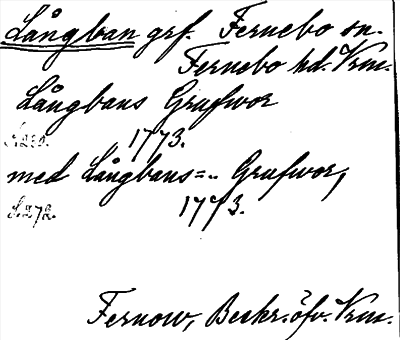 Långban grf. Fernebo sn.
Fernebo hd. Vrm.
Långbans Grufwor
1773.
med Långbans=.. Grufwor,
S. 272. 1773.
Fernow, Beskr. öfv. Vrm.